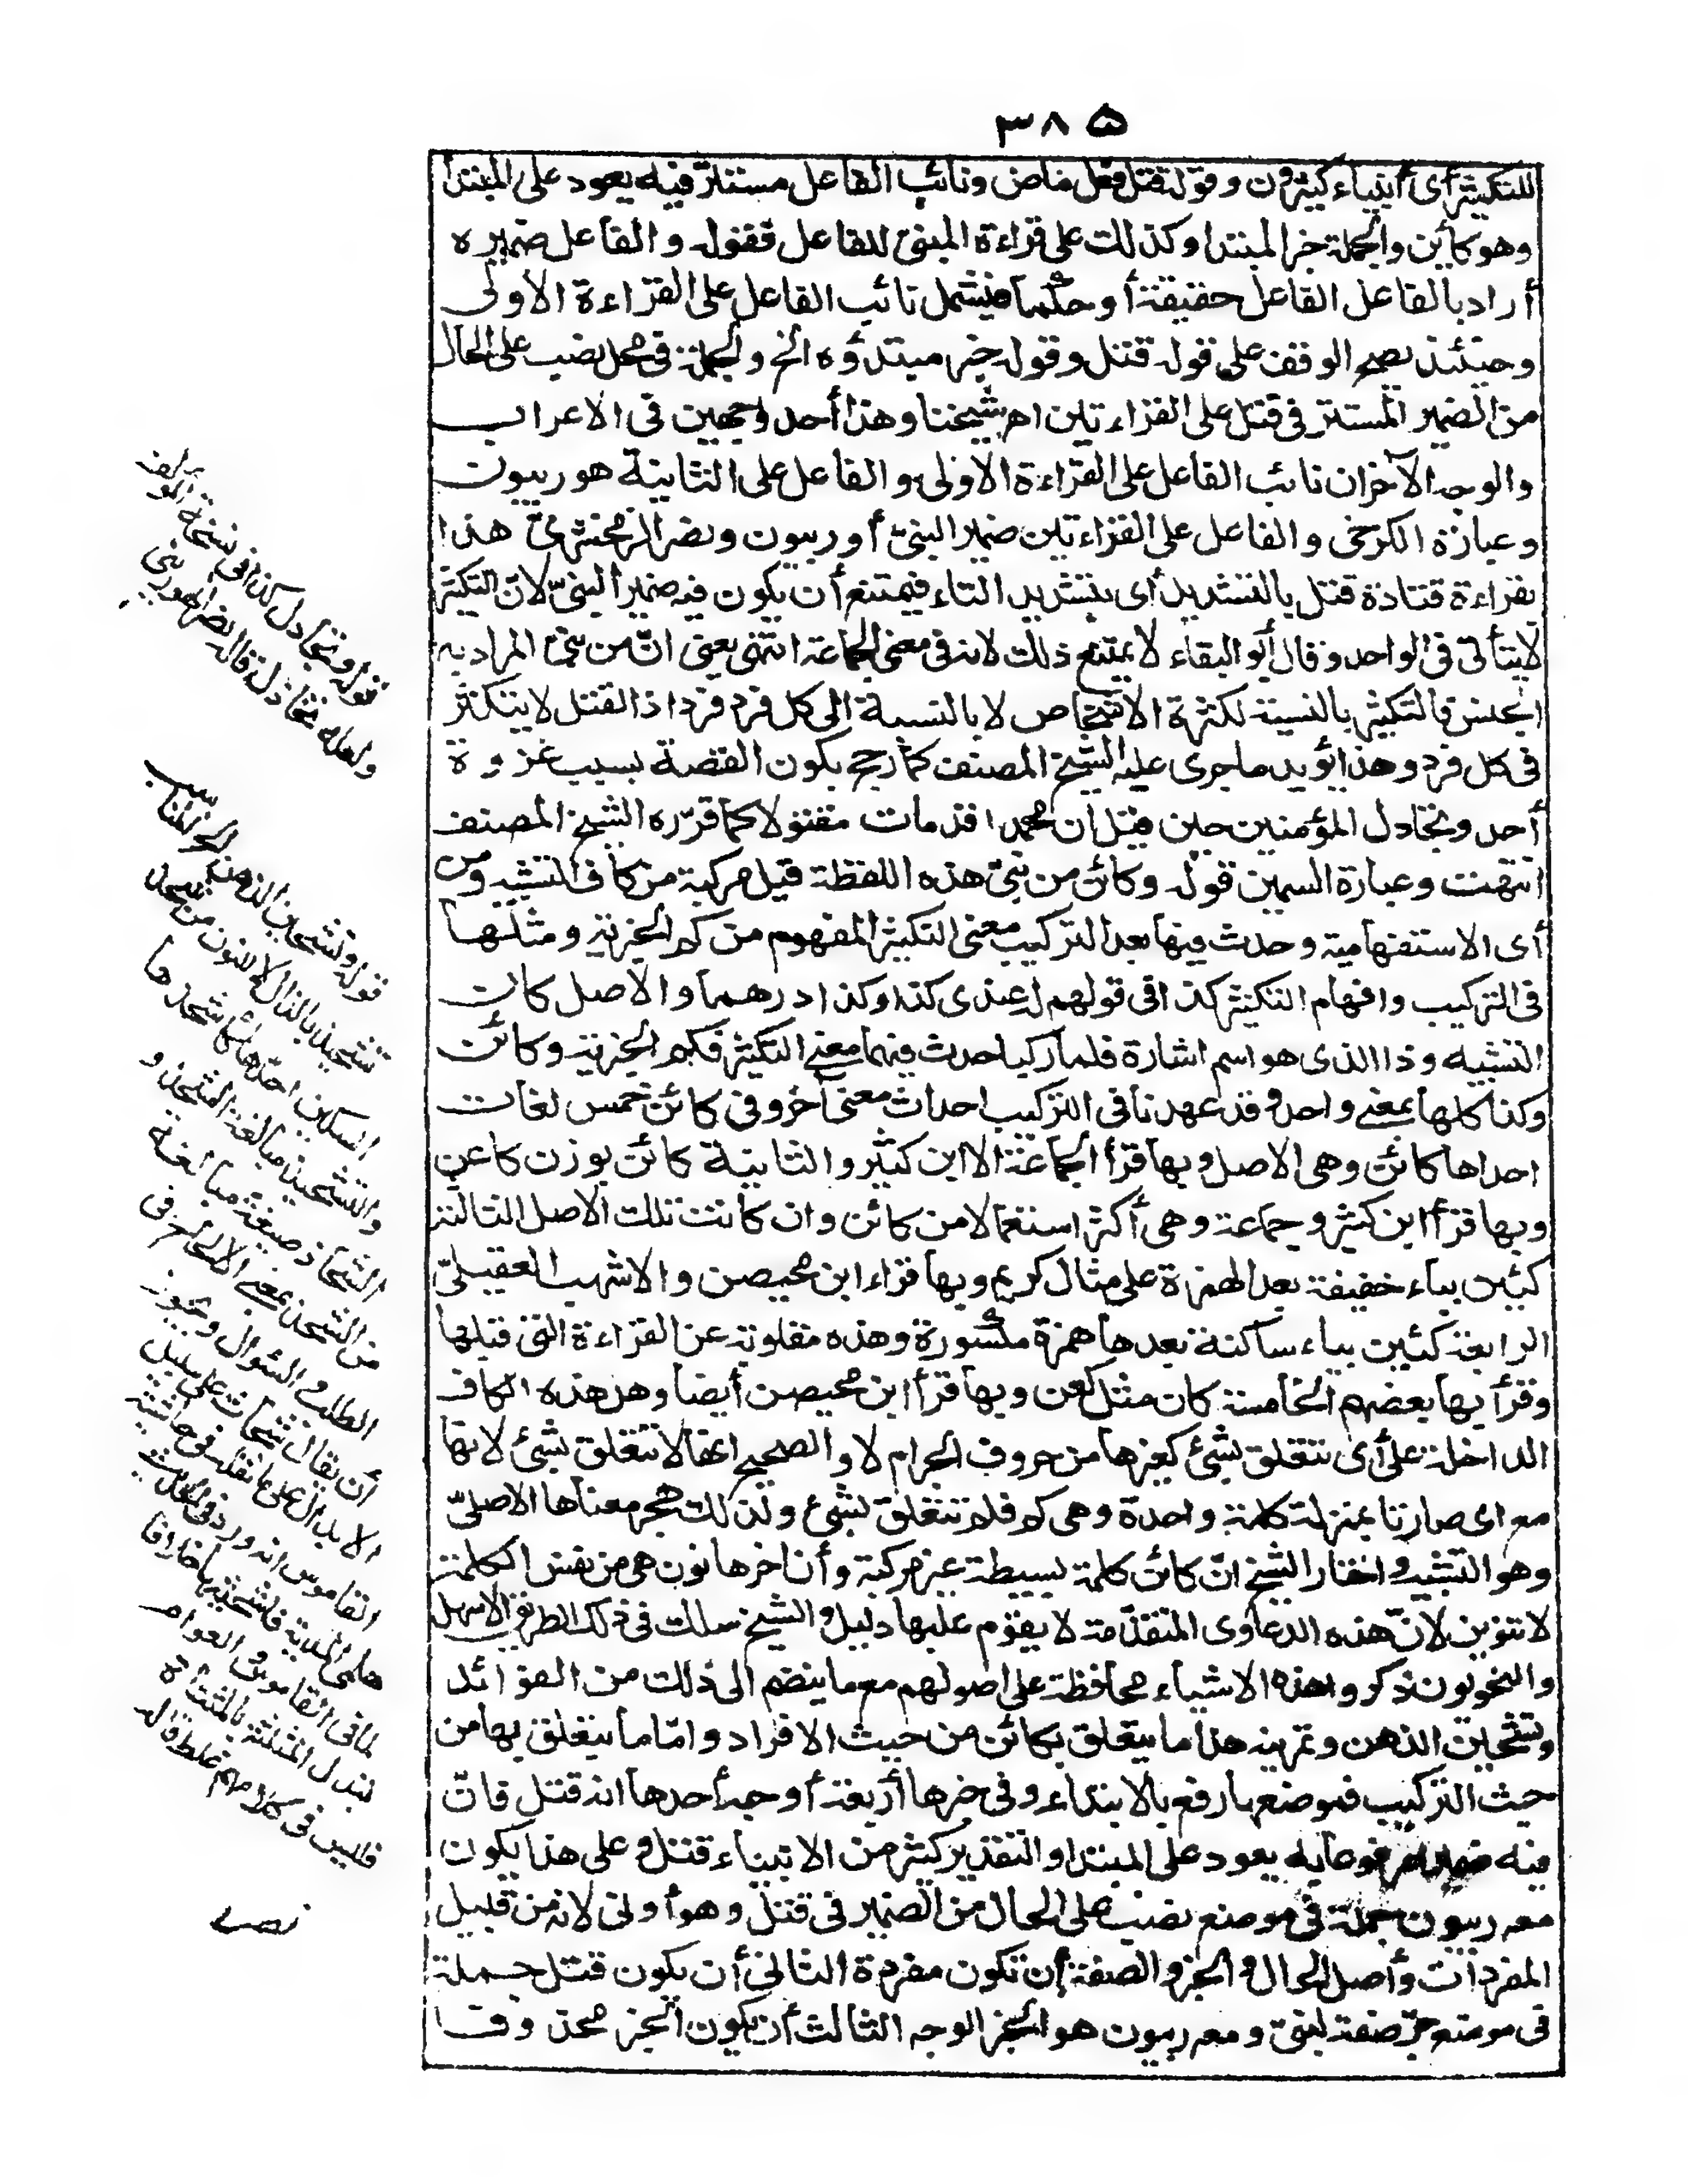 ٣٨٥
للتكثير أى أنبياء كثيرون وقوله قتل فعل ماض ونائب الفاعل مستتر فيه يعود على المبتدأ
وهو كأين والجملة خبر المبتدا وكذلك على قراءة المبنى للفاعل فقوله والفاعل ضميره
أراد بالفاعل الفاعل حقيقة أو حكما فيشمل نائب الفاعل على القراءة الأولى
وحينئذ يصح الوقف على قوله قتل وقوله خبر مبتدؤه الخ والجملة فى محل نصب على الحال
من الضمير المستتر فى قتل على القراءتين اهـ شيخنا وهذا أحد وجهين فى الاعراب
والوجه الآخر ان نائب الفاعل على القراءة الاولى والفاعل على الثانية هو ربيون
وعبارة الكرخى والفاعل على القراءتين ضمير النبىّ أو ربيون ونصر الزمخشرىّ هذا
بقراءة قتادة قتل بالتشديد أى بتشديد التاء فيمتنع أن يكون فيه ضمير النبىّ لانّ التكثير
لا يتأتى فى الواحد وقال أبو البقاء لا يمتنع ذلك لانه فى معنى الجماعة انتهى يعنى انّ من نبىّ المراد به
الجنس فالتكثير بالنسبة لكثرة الاشخاص لا بالنسبة الى كل فرد فرد اذ القتل لا يتكثر
فى كل فرد وهذا يؤيد ما جرى عليه الشيخ المصنف كما رجح بكون القصة بسبب غزوة
أحد وتخاذل المؤمنين حين قيل ان محمدا قد مات مقتولا كما قرّره الشيخ المصنف
انتهت وعبارة السمين قوله وكائن من نبىّ هذه اللفظة قيل مركبة من كاف التشبيه ومن
أى الاستفهامية وحدث فيها بعد التركيب معنى التكثير المفهوم من كم الخبرية ومثلها
فى التركيب وافهام التكثير كذا فى قولهم له عندى كذا وكذا درهما والاصل كاف
التشبيه وذا الذى هو اسم اشارة فلما ركبا حدث فيهما معنى التكثير فكم الخبرية وكائن
وكذا كلها بمعنى واحد وقد عهدنا فى التركيب احداث معنى آخر وفى كائن خمس لغات
احداها كائن وهى الاصل وبها قرأ الجماعة الا ابن كثير والثانية كائن بوزن كاعن
وبها قرأ ابن كثير وجماعة وهى أكثر استعمالا من كائن وان كانت تلك الاصل الثالثة
كئين بياء خفيفة بعد الهمزة على مثال كريم وبها قراء ابن محيصن والاشهب العقيلىّ
الرابعة كيئن بياء ساكنة بعدها همزة مكسورة وهذه مقلوبة عن القراءة التى قبلها
وقرأ بها بعضهم الخامسة كان مثل كعن وبها قرأ ابن محيصن أيضا وهل هذه الكاف
الداخلة على أى تتعلق بشئ كغيرها من حروف الجرام لا والصحيح انها لا تتعلق بشئ لانها
مع اى صارتا بمنزلة كلمة واحدة وهى كم فلم تتعلق بشئ ولذلك هجر معناها الاصلىّ
وهو التشبيه واختار الشيخ انّ كائن كلمة بسيطة غير مركبة وأن اخرها نون هى من نفس الكلمة
لا تنوين لانّ هذه الدعاوى المتقدّمة لا يقوم عليها دليل والشيخ سلك فى ذلك الطريق الاسهل
والنحويون ذكروا هذه الاشياء محافظة على اصولهم مع ما ينضم الى ذلك من الفوائد
وتشحين الذهن وتمرينه هذا ما يتعلق بكائن من حيث الافراد وامّا ما يتعلق بها من
حيث التركيب فموضعها رفع بالابتداء وفى خبرها أربعة أوجه أحدها انه قتل فانّ
فيه ضميرا مرفوعا به يعود على المبتدا والتقدير كثير من الانبياء قتل وعلى هذا يكون
معه ربيون جملة فى موضع نصب على الحال من الضمير فى قتل وهو أولى لانه من قبيل
المفردات وأصل الحال والخبر والصفة أن تكون مفردة الثانى أن يكون قتل جملة
فى موضع جرّ صفة لنبىّ ومعه ربيون هو الخبر الوجه الثالث أن يكون الخبر محذوفا
قوله وتخاذل كذا فى نسخة المؤلف
ولعله تخاذلة قاله نصر الهورينى
قوله وتشحين الذهن الخ المناسب
تشحيذ بالذال لا بالنون من شحذ
السكين احدّها كأشحذها
والتشحيذ مبالغة الشحذ و
الشحاذ صيغة مبالغة
من الشحذ بمعنى الالحاح فى
الطلب والسؤال ويجوز
أن يقال شحاث على سبيل
الابدال على ما نقله فى حاشية
القاموس انه ورد فى الحديث
هلمى المدية فاشحثيها خلافا
لما فى القاموس والعوام
تبدل المثلثة بالمثناة
فليس فى كلامهم غلط قاله
نصر